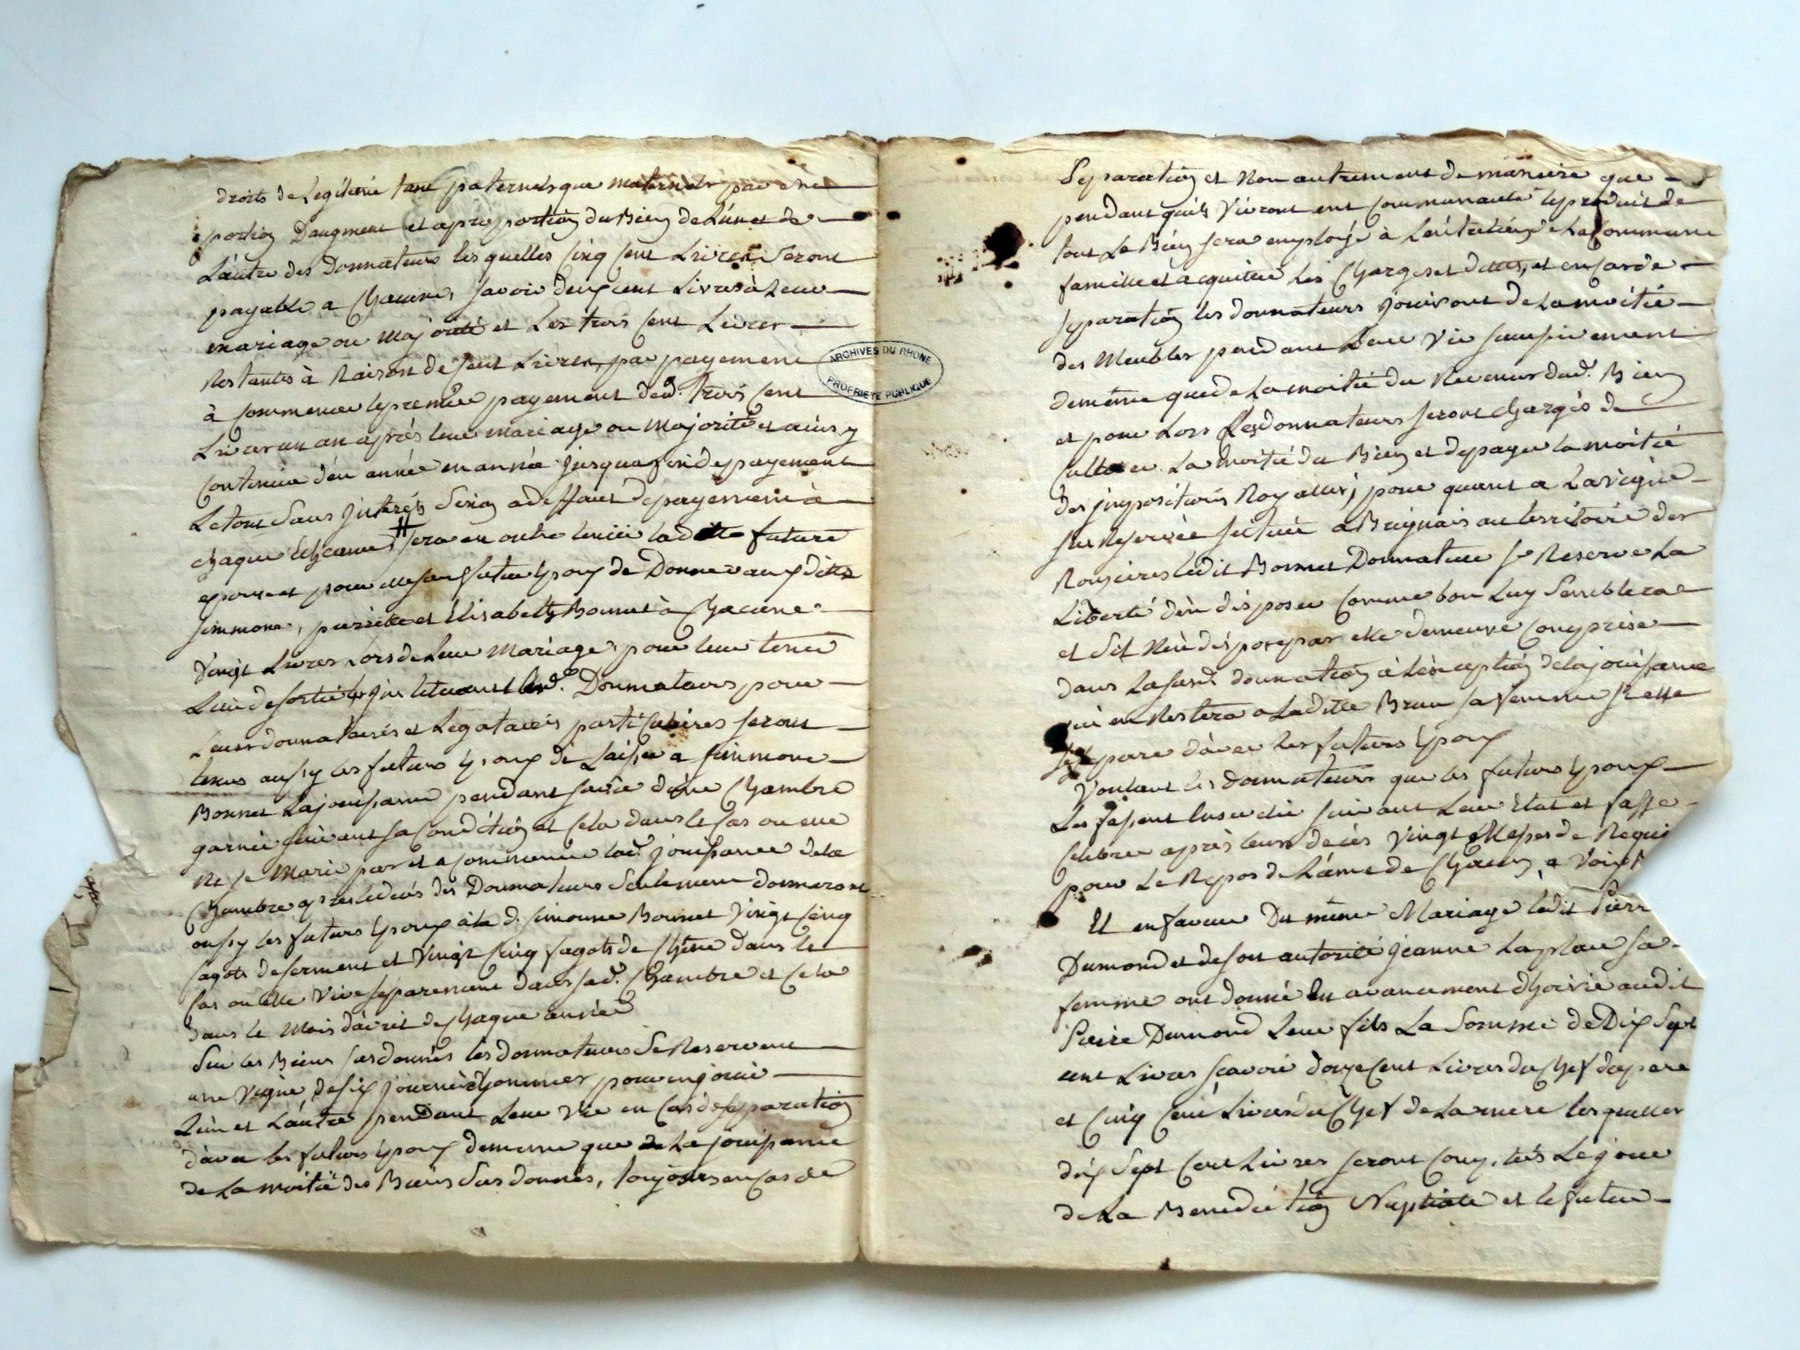 droits de Legitime tant paternels que maternels par une
portion Daugment et aproportion du Bien de L'un et de
L'autre des Donnateurs les quelles Cinq Cent Livres Seront
payable a Chacune, Savoir deux cent Livres à Leur
mariage ou Majorité et Les trois Cent Livres
Restantes à Raison de Cent Livres par payement
à Commencer le premier payement desd. trois Cent
Livres un an après leur mariage ou majorité et ainsy
Continuer d'en année en année jusqua fin de payement
Le tout Sans Interêts Sinon adeffaut de payement à
chaque Echeance, sera en outre tenüe laditte future
epouse et pour elle son futur Epoux de Donner aux dittes
Simmone, pierrette et Elisabeth Bonnet à Chacune
Vingt Livres Lors de Leur Mariage pour leur tenir
Lieu de Donnateurs pour
Leurs donnataires et Legataires particulieres seront
tenus aussy les futurs Epoux de Laisser a Simmone
Bonnet La jouissance pendant sa vie d'une Chambre
garnie suivant sa Condition et Cela dans le Cas ou elle
ne se Marie pas et a commencer lad. jouissance de la
Chambre apres le deces des Donnateurs Seulement donneront
aussy les futurs Epoux à la d. Simonne Bonnet Vingt Cinq
fagots de serment et Vingt Cinq fagots de Chêne dans le
Cas ou elle Vive separement dans sad. Chambre et Cela
dans le Mois d'avril de Chaque année
Sur les Biens susdonnés les donnateurs Se Reservent
une Vigne de six journées d'hommes pour en jouir
L'un et L'autre pendant Leur Vie en Cas de separation
d'avec les futurs Epoux de meme que de La jouissance
de La moitié des Biens Sus donnés, toujours en Cas de
ARCHIVES DU RHONE
PROPRIETE PUBLIQUE
Separation et Non autrement de maniere que
pendant quils Vivront en Communauté le produit de
tout Le Bien sera employé à L'entretien de La Commune
famille et acquitter les Charges et dettes, et en Cas de
separation les donnateurs jouiront de La moitié
des Meubles pendant Leur Vie
de même que de La moitié du Revenu dud. Bien
et pour Lors Les donnateurs seront chargés de
Cultiver La Moitié du Bien et de payer la moitié
des impositions Royalles, pour quant a La vigne
sus reservée scituée a Brignais au territoire des
Ronzieres ledit Bonnet Donnateur se Reserve La
Liberté d'en disposer Comme bon Luy Semblera
et Sil N'en dispose par elle demeure Comprise
dans La susd. donnation à L'exception de la jouissance
qui en Restera a Laditte Brun sa femme Si elle
se separe d'avec les futurs Epoux
Voulant les donnateurs que les futurs Epoux
Les fassent Ensevelir suivant Leur Etat et fasse
Celebrer après leurs deces Vingt Messes de Requi
pour Le Repos de L'ame de Chacun, a
Et en faveur Du même Mariage ledit Pierr
Dumond et de son autorité jeanne Laplace sa
femme ont donné En avancement d'hoirie audit
Pierre Dumond Leur fils La Somme de Dix Sept
cent Livres scavoir douze Cent Livres du Chef du pere
et Cinq Cent Livres du Chef de La mere les quelles
dix Sept Cent Livres seront Le jour
de La Benediction Nuptiale et le futur